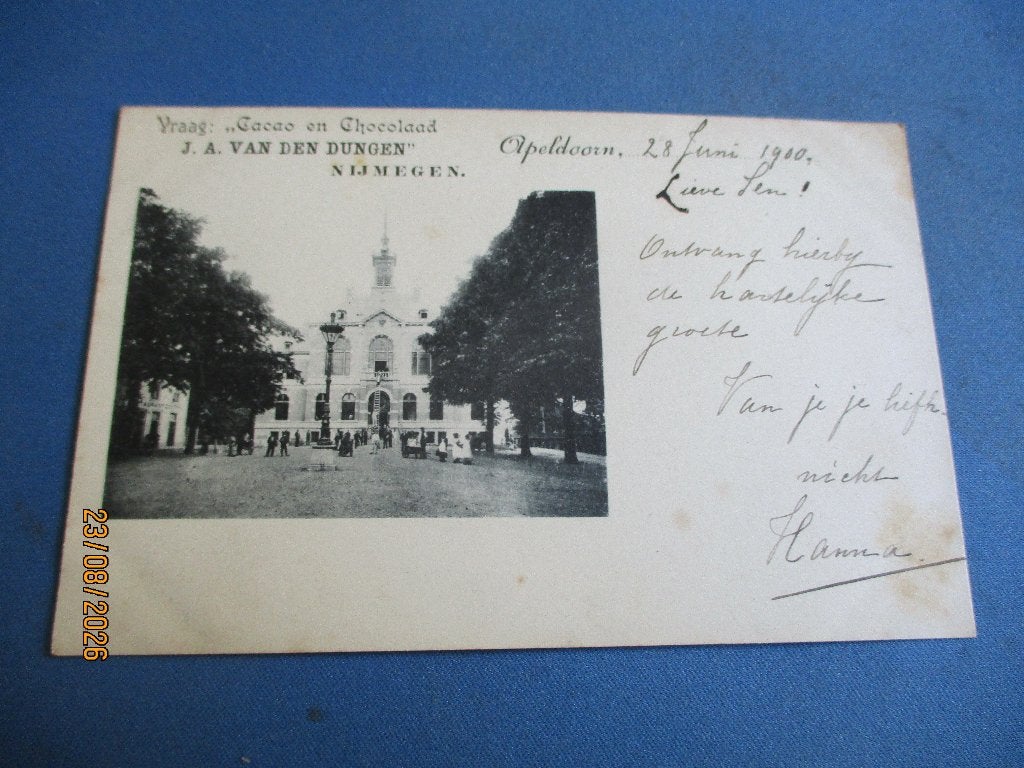 Vraag: „Cacao en Chocolaad
J. A. VAN DEN DUNGEN”
NIJMEGEN.
Apeldoorn, 28 Juni 1900.
Lieve Len!
Ontvang hierby
de hartelijke
groete
Van je je liefh.
nicht
Hanna
23/08/2026